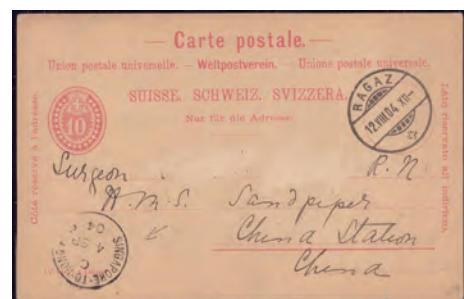 Carte postale.
Union postale universelle. — Weltpostverein. — Unione postale universale.
SUISSE. SCHWEIZ. SVIZZERA.
Nur für die Adresse.
10
RAGAZ
12.VIII.04.XII-
Côté réservé à l'adresse.
Lato riservato all'indirizzo.
Surgeon R.N.
H.M.S. Sandpiper
China Station
China
SINGAPORE-TO-HONG
C
4 SE
04